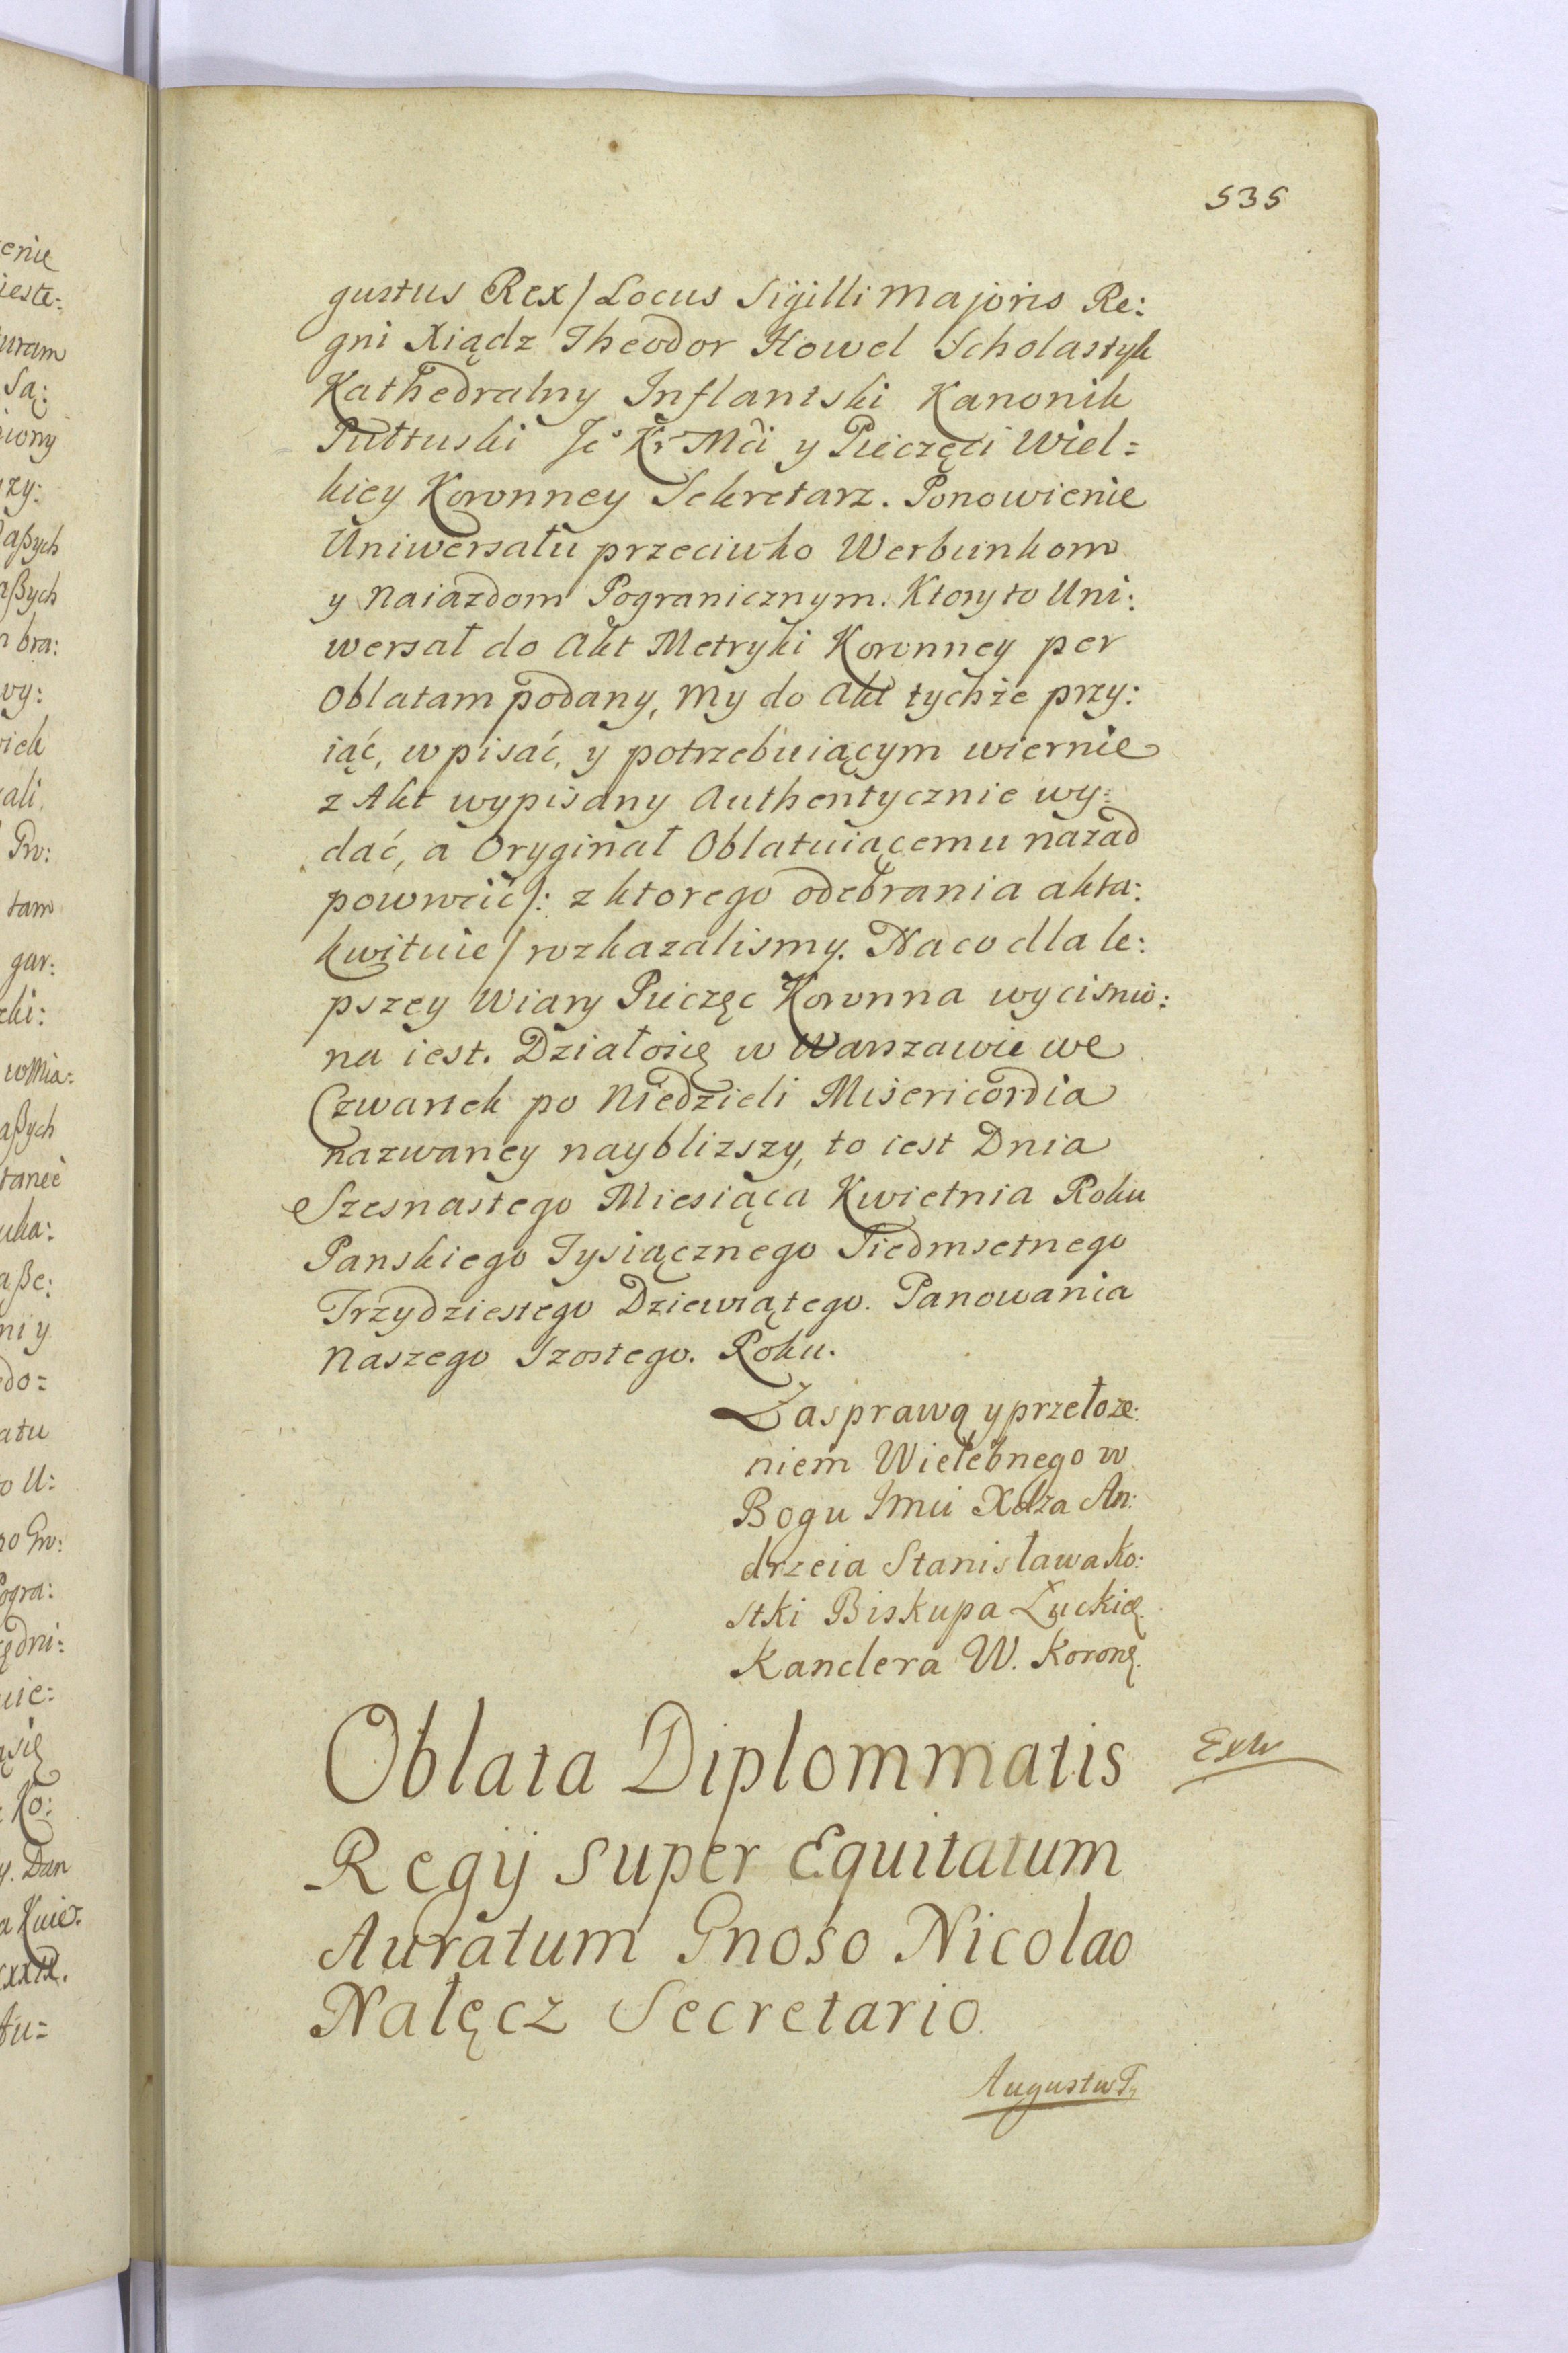 535
gustus Rex / Locus Sigilli Majoris Re:
gni Xiądz Theodor Howel Scholastyk
Kathedralny Inflantski Kanonik
Pułtuski Jº Kr Mći y Pieczęci Wiel=
kiey Koronney Sekretarz. Ponowienie
Uniwersału przeciwko Werbunkom
y Naiazdom Pogranicznym. Ktory to Uni:
wersał do Akt Metryki Koronney per
Oblatam podany, My do Akt tychże przy:
iąć, wpisać, y potrzebuiącym wiernie
z Akt wypisany Authentycznie wy:
dać, a Oryginał Oblatuiącemu nazad
powrócić /: z ktorego odebrania akta:
kwituie / rozkazalismy. Na co dla le:
pszey Wiary Pieczęc Koronna wycisnio:
na iest. Działosię w Warszawie we
Czwartek po Niedzieli Misericordia
nazwaney nayblizszy, to iest Dnia
Szesnastego Miesiąca Kwietnia Roku
Panskiego Tysiącznego Siedmsetnego
Trzydziestego Dziewiątego. Panowania
Naszego Szostego. Roku.
Za sprawą y przełoże:
niem Wielebnego w
Bogu Jmći Xdza An:
drzeia Stanisława Ko:
stki Biskupa Łuckię.
Kanclera W. Koronę.
Oblata Diplommatis
Regij super Equitatum
Auratum Gnoso Nicolao
Nałęcz Secretario.
Augustus T,